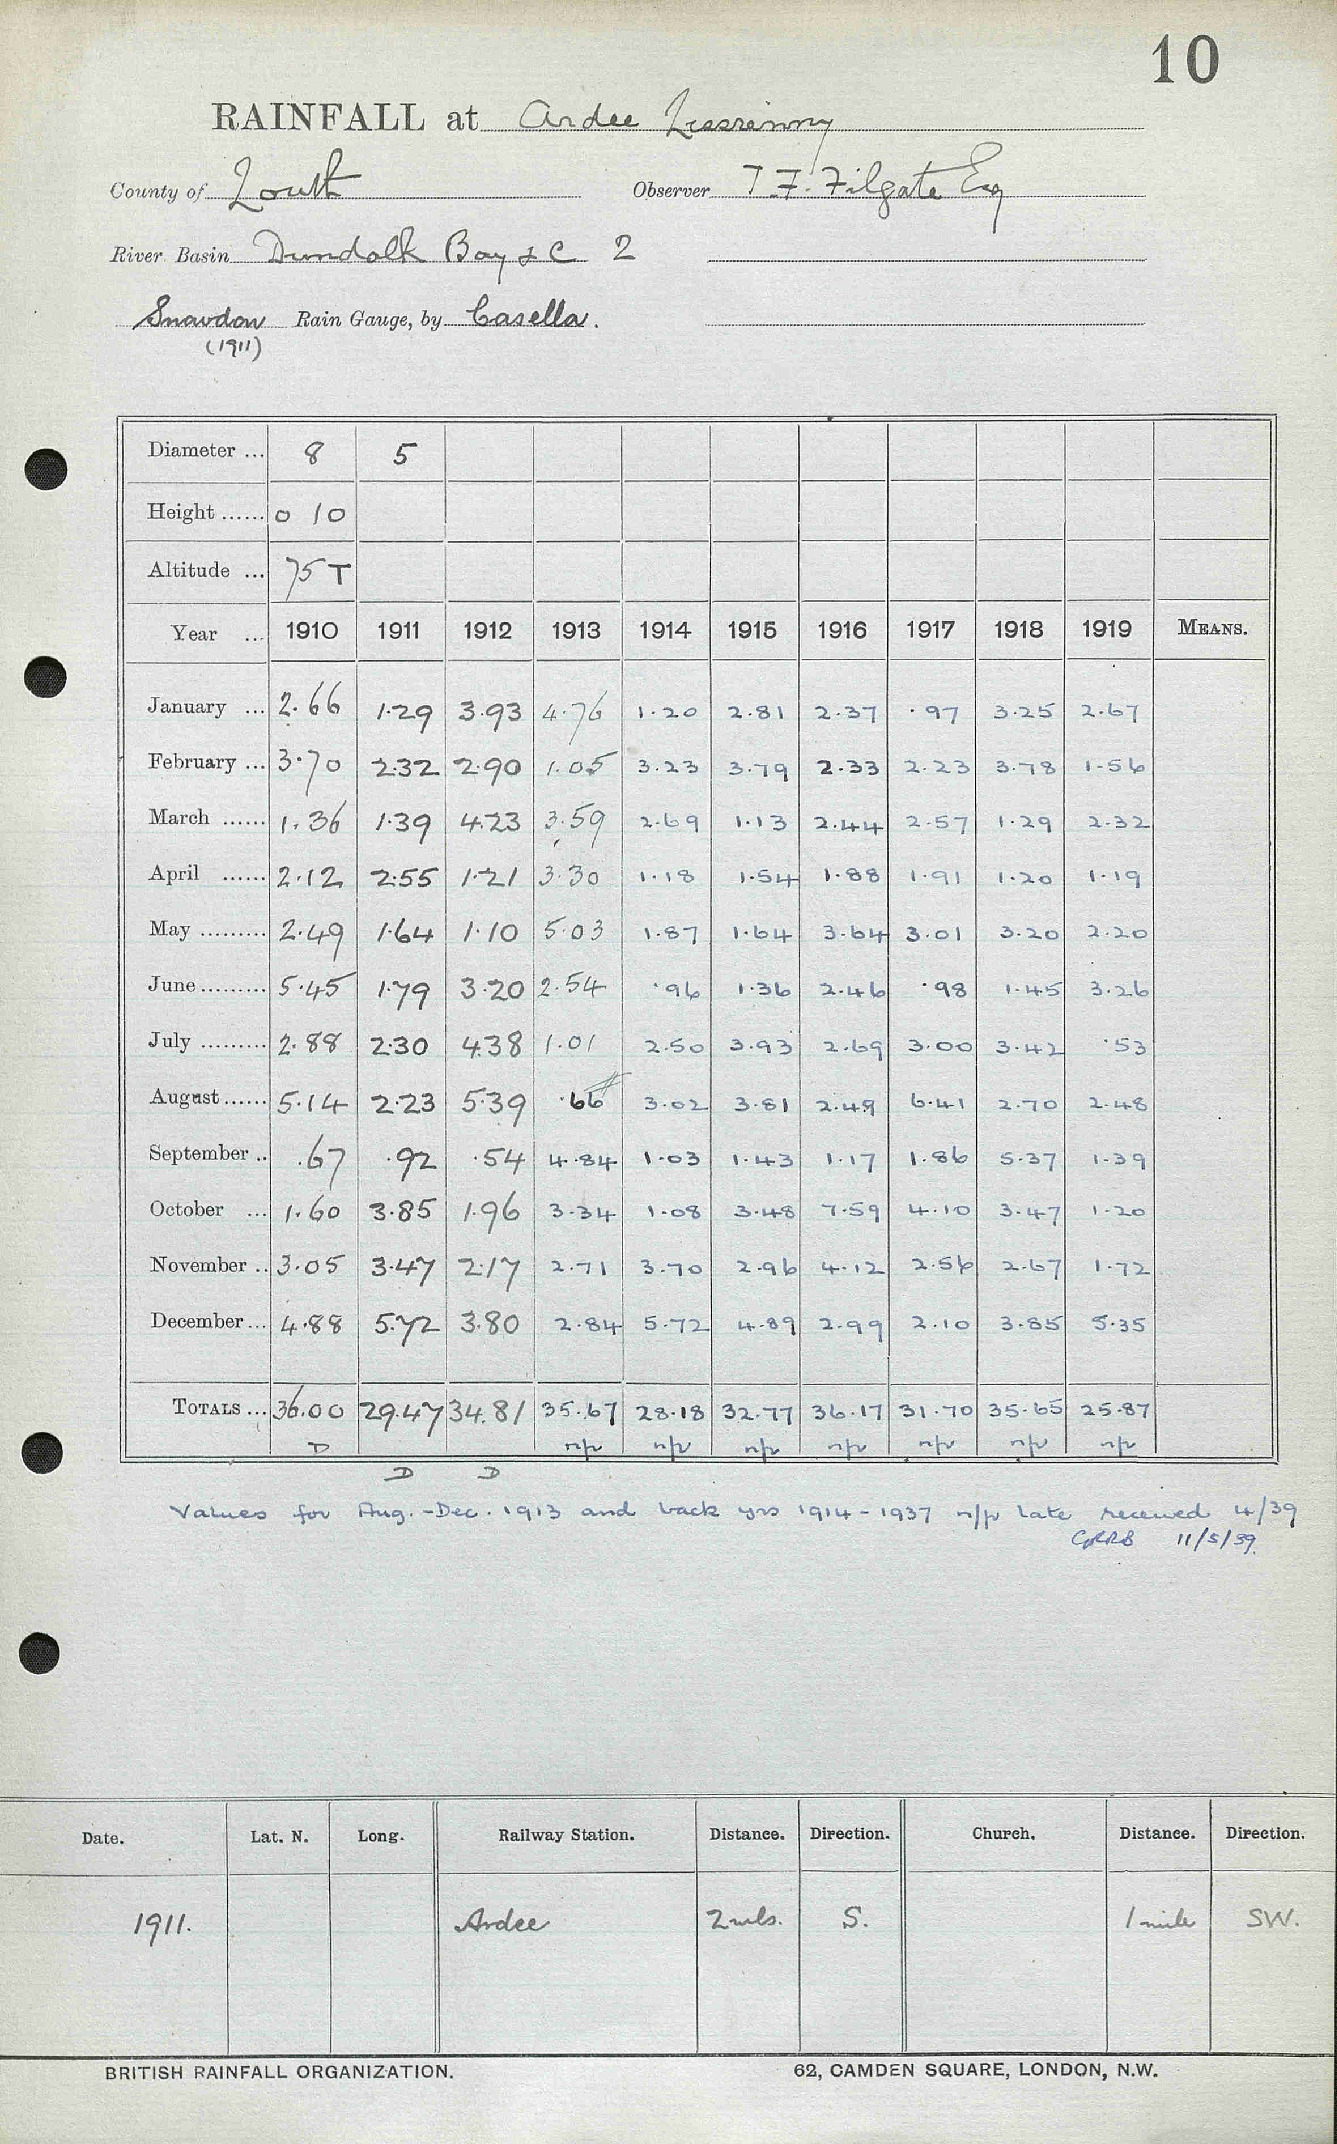 10
RAINFALL at Ardee Lisrenny
County of Louth Observer T. F. Filgate Esq
River Basin Dundalk Bay & C 2
Snowdon Rain Gauge, by Casella.
(1911)
Diameter ... 8 5
Height ...... 0 10
Altitude ... 75 T
Year ... 1910 1911 1912 1913 1914 1915 1916 1917 1918 1919 MEANS.
January ... 2.66 1.29 3.93 4.76 1.20 2.81 2.37 .97 3.25 2.67
February ... 3.70 2.32 2.90 1.05 3.23 3.79 2.33 2.23 3.78 1.56
March ...... 1.36 1.39 4.23 3.59 2.69 1.13 2.44 2.57 1.29 2.32
April ...... 2.12 2.55 1.21 3.30 1.18 1.54 1.88 1.91 1.20 1.19
May ......... 2.49 1.64 1.10 5.03 1.87 1.64 3.64 3.01 3.20 2.20
June ......... 5.45 1.79 3.20 2.54 .96 1.36 2.46 .98 1.45 3.26
July ......... 2.88 2.30 4.38 1.01 2.50 3.93 2.69 3.00 3.42 .53
August ...... 5.14 2.23 5.39 .66 3.02 3.81 2.49 6.41 2.70 2.48
September .. .67 .92 .54 4.84 1.03 1.43 1.17 1.86 5.37 1.39
October ... 1.60 3.85 1.96 3.34 1.08 3.48 7.59 4.10 3.47 1.20
November .. 3.05 3.47 2.17 2.71 3.70 2.96 4.12 2.56 2.67 1.72
December ... 4.88 5.72 3.80 2.84 5.72 4.89 2.99 2.10 3.85 5.35
TOTALS ... 36.00 29.47 34.81 35.67 28.18 32.77 36.17 31.70 35.65 25.87
D n/p n/p n/p n/p n/p n/p n/p
D D
Values for Aug.-Dec. 1913 and back yrs 1914-1937 n/p late received 4/39
11/5/39.
Date. Lat. N. Long. Railway Station. Distance. Direction. Church. Distance. Direction.
1911. Ardee 2 mls. S. 1 mile SW.
BRITISH RAINFALL ORGANIZATION. 62, CAMDEN SQUARE, LONDON, N.W.